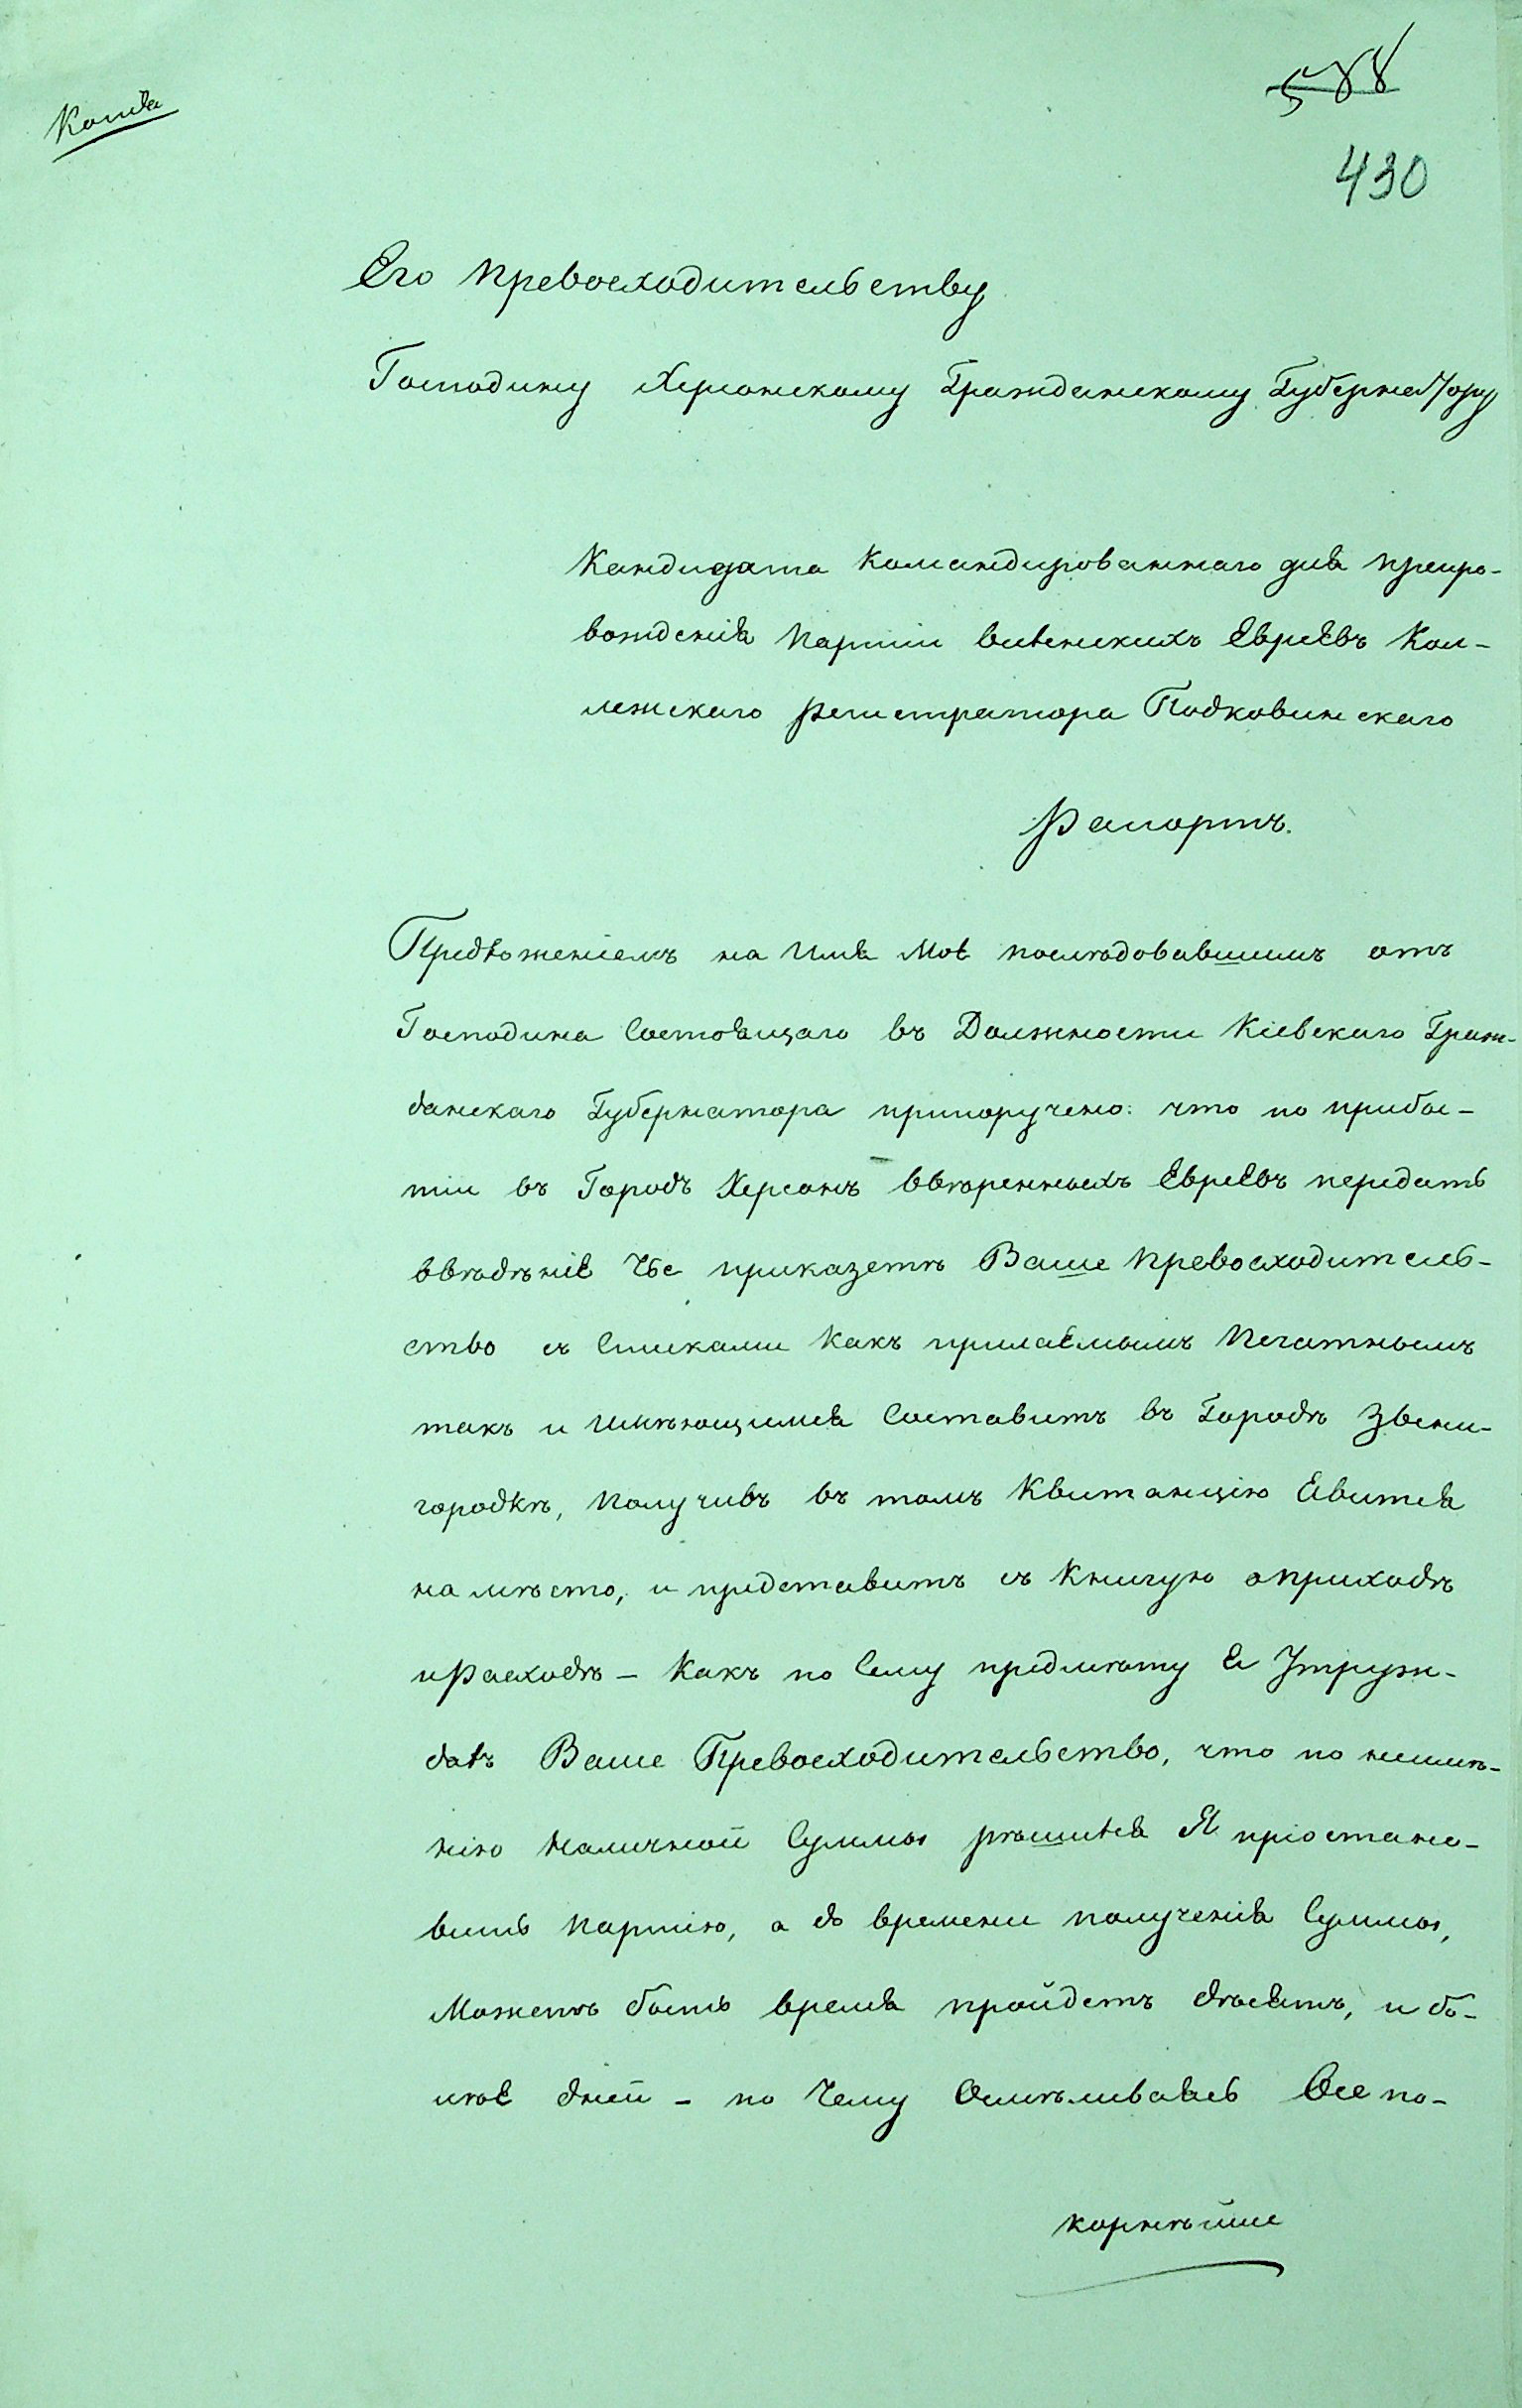 Копія
588
430
Его Превосходительству
Господину Херсонскому Гражданскому Губернатору
Кандидата Командированнаго для препро-
вожденія Партіи Виленскихъ Евреевъ Кол-
лежскаго Регистратора Подковинскаго
Рапортъ.
Предложеніемъ на Имя Моё последовавшимъ отъ
Господина Состоящаго въ Должности Кіевскаго Граж-
данскаго Губернатора припоручено: что по прибы-
тіи въ Городъ Херсонъ ввѣренныхъ Евреевъ передать
ввѣдѣніе Чье прикажетъ Ваше Превосходитель-
ство съ Списками Какъ прилаемымъ Печатнымъ
такъ и Имѣющимся Составитъ въ Городѣ Звени-
городкѣ, Получивъ въ томъ Квитанцію Явится
на мѣсто, и представитъ съ Книгую оприходѣ
иРасходѣ – Какъ по Сему предмѣту я Утруж-
даѣ Ваше Превосходительство, что по неимѣ-
нію Наличной Суммы рѣшился Я пріостано-
вить Партію, а до времени полученія Суммы,
Можетъ быть время пройдетъ дѣсять, и бо-
лѣе дней – по Чему Осмѣливаясь Все по-
корнѣйше